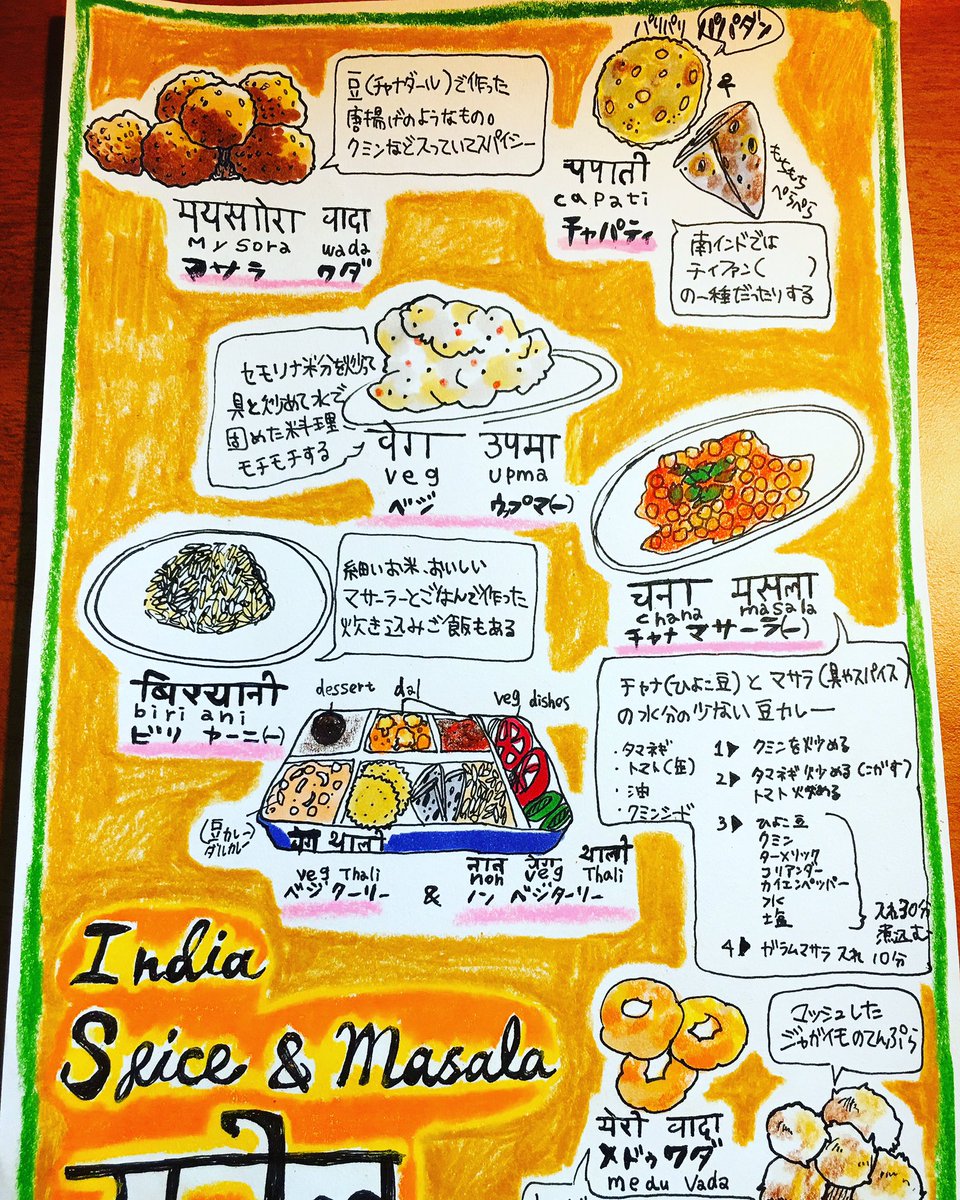 豆(チャナダール)で作った
唐揚げのようなもの。
クミンなど入っていてスパイシー
मयसाोरा वादा
Mysora wada
マサラ ワダ
パリパリ
パパダン
&
चपाती
capati
チャパティ
もちもち
ぺらぺら
南インドでは
ティファン( )
の一種だったりする
セモリナ米分を炒って
具と炒めて水で
固めた料理
モチモチする
वेग उपमा
veg upma
ベジ ウップマ(ー)
चना मसला
chana masala
チャナ マサーラ(ー)
細いお米、おいしい
マサーラーとごはんで作った
炊き込みご飯もある
बिरयानी
biri ani
ビリ ヤーニ(ー)
チャナ(ひよこ豆)と マサラ(具やスパイス)
の水分の少ない豆カレー
・タマネギ
・トマト(缶)
・油
・クミンシード
1▶ クミンを炒める
2▶ タマネギ炒める(こがす)
トマト炒める
3▶ ひよこ豆
クミン
ターメリック
コリアンダー
カイエンペッパー
水
塩
入れ30分
煮込む
4▶ ガラムマサラ入れ 10分
dessert dal veg dishos
(豆カレー)
ダルカレー
वेग थाली
veg Thali
ベジ ターリー
&
नान वेग थाली
non veg Thali
ノン ベジターリー
India
Spice & Masala
मेरो वादा
メドゥワダ
medu vada
マッシュした
ジャガイモのてんぷら